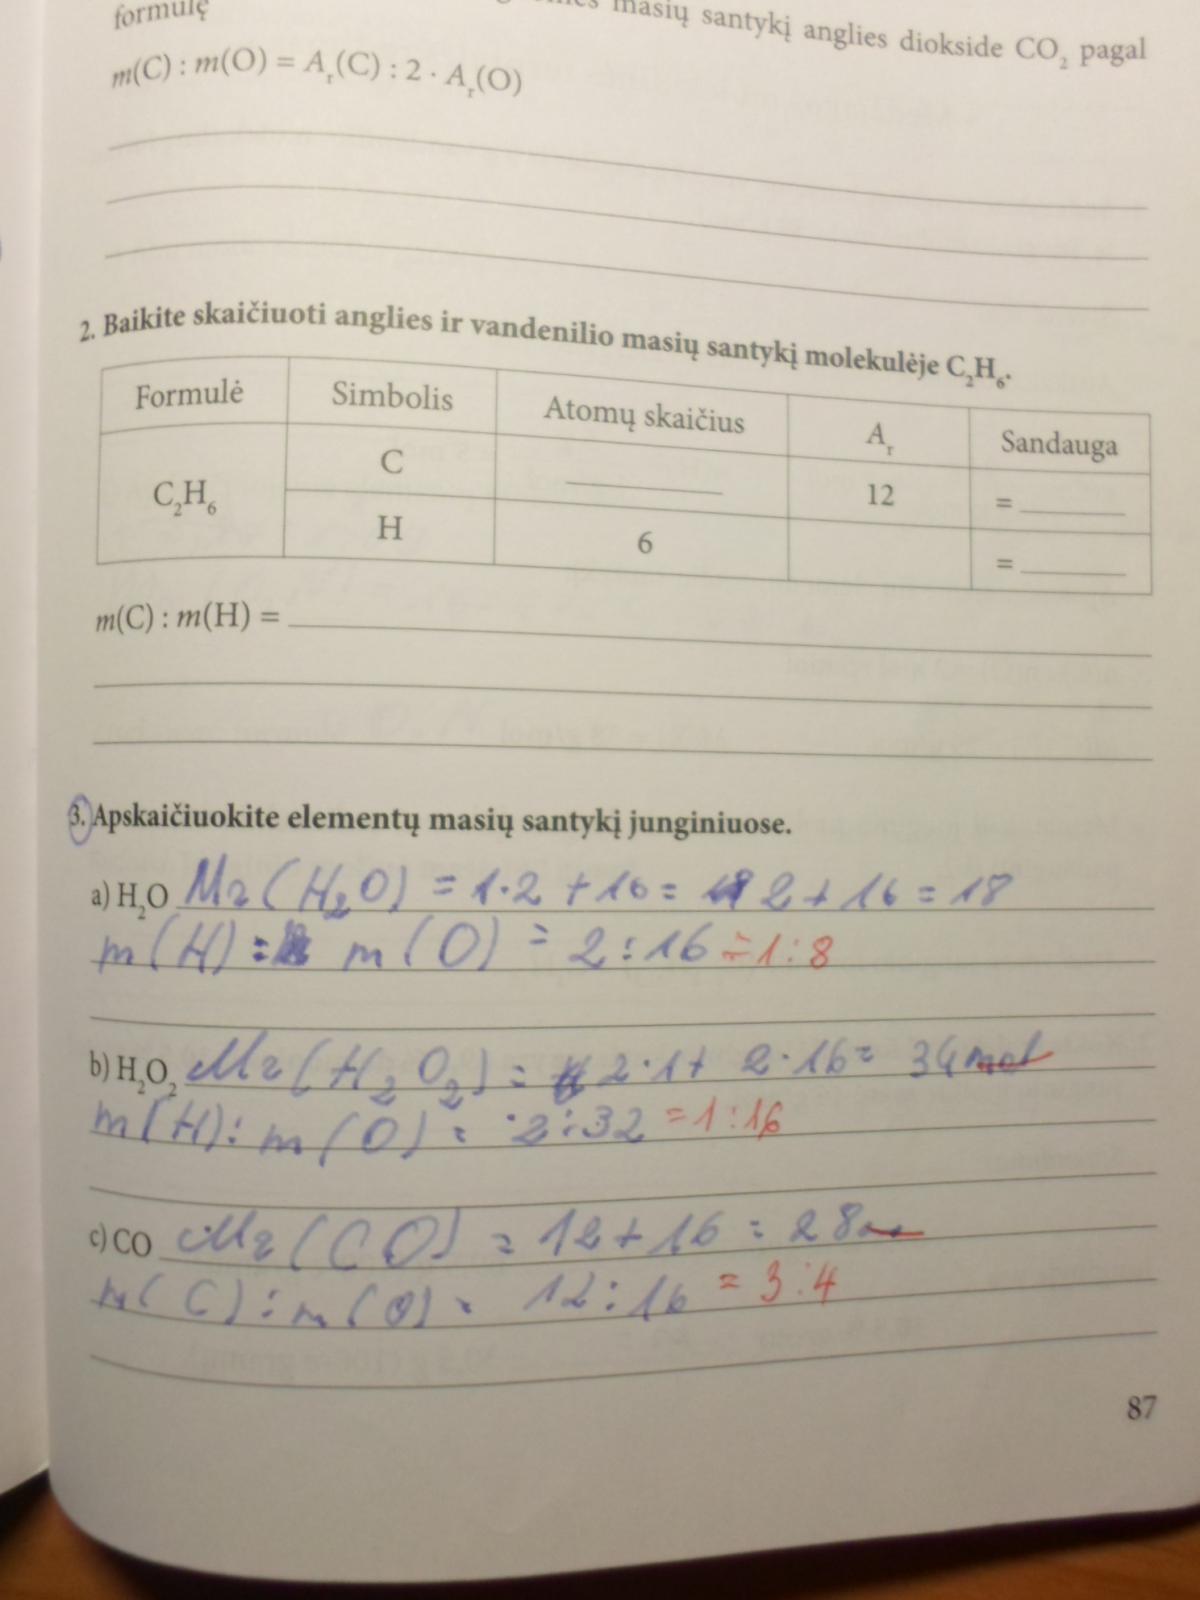 masių santykį anglies diokside CO₂ pagal
formulę
m(C) : m(O) = Aᵣ(C) : 2 · Aᵣ(O)
2. Baikite skaičiuoti anglies ir vandenilio masių santykį molekulėje C₂H₆.
Formulė Simbolis Atomų skaičius Aᵣ Sandauga
C₂H₆ C ____ 12 = ____
H 6 = ____
m(C) : m(H) = ____
3. Apskaičiuokite elementų masių santykį junginiuose.
a) H₂O Mr(H₂O) = 1·2 + 16 = 2 + 16 = 18
m(H) : m(O) = 2 : 16 = 1 : 8
b) H₂O₂ Mr(H₂O₂) = 2·1 + 2·16 = 34 mol
m(H) : m(O) = 2 : 32 = 1 : 16
c) CO Mr(CO) = 12 + 16 = 28
m(C) : m(O) = 12 : 16 = 3 : 4
87